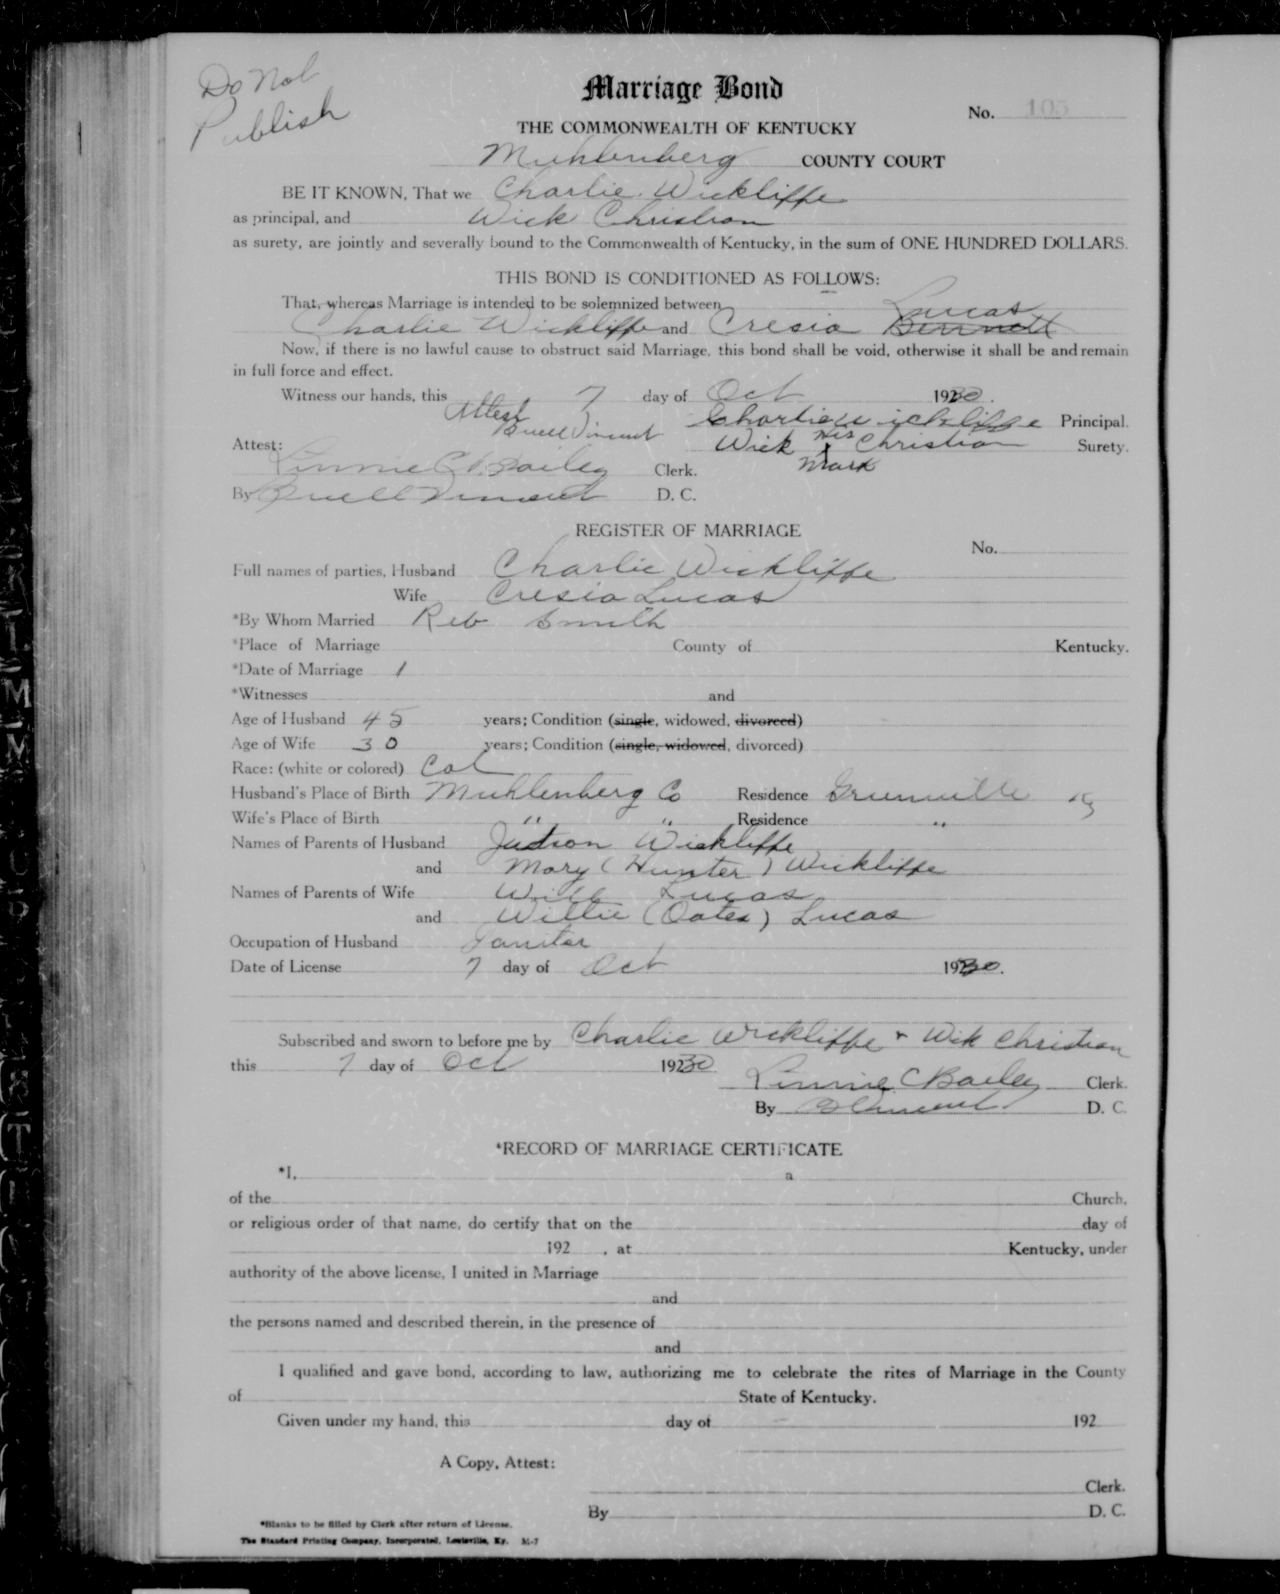 Do Not
Publish
Marriage Bond
No. 105
THE COMMONWEALTH OF KENTUCKY
Muhlenberg COUNTY COURT
BE IT KNOWN, That we Charlie Wickliffe
as principal, and Wick Christian
as surety, are jointly and severally bound to the Commonwealth of Kentucky, in the sum of ONE HUNDRED DOLLARS.
THIS BOND IS CONDITIONED AS FOLLOWS:
That, whereas Marriage is intended to be solemnized between Lucas
Charlie Wickliffe and Cresia
Now, if there is no lawful cause to obstruct said Marriage, this bond shall be void, otherwise it shall be and remain
in full force and effect.
Witness our hands, this 7 day of Oct 1930.
Attest Charlie Wickliffe Principal.
Buell Vincent
Attest: Wick his x mark Christian Surety.
Linnie C. Bailey Clerk.
By Buell Vincent D. C.
REGISTER OF MARRIAGE
No.
Full names of parties, Husband Charlie Wickliffe
Wife Cresia Lucas
*By Whom Married Rev Smith
*Place of Marriage County of Kentucky.
*Date of Marriage 1
*Witnesses and
Age of Husband 45 years; Condition (single, widowed, divorced)
Age of Wife 30 years; Condition (single, widowed, divorced)
Race: (white or colored) Col
Husband's Place of Birth Muhlenberg Co Residence Greenville Ky
Wife's Place of Birth " " Residence "
Names of Parents of Husband Judson Wickliffe
and Mary (Hunter) Wickliffe
Names of Parents of Wife Will Lucas
and Willie (Oates) Lucas
Occupation of Husband Janiter
Date of License 7 day of Oct 1930.
Subscribed and sworn to before me by Charlie Wickliffe + Wik Christian
this 7 day of Oct 1930
Linnie C Bailey Clerk.
By B Vincent D. C.
*RECORD OF MARRIAGE CERTIFICATE
*I, a
of the Church,
or religious order of that name, do certify that on the day of
192 , at Kentucky, under
authority of the above license, I united in Marriage
and
the persons named and described therein, in the presence of
and
I qualified and gave bond, according to law, authorizing me to celebrate the rites of Marriage in the County
of State of Kentucky.
Given under my hand, this day of 192
A Copy, Attest:
Clerk.
By D. C.
*Blanks to be filled by Clerk after return of License.
The Standard Printing Company, Incorporated, Louisville, Ky. M-7